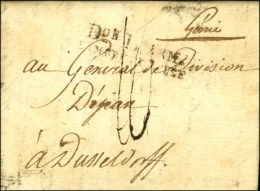 Génie
Don 1
au General de Division
Dépian
à Dusseldorff.